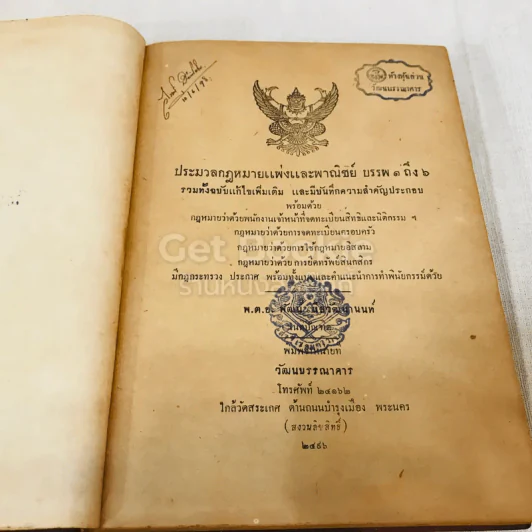 ห้างหุ้นส่วน
วัฒนบรรณาคาร
ประมวลกฎหมายแพ่งและพาณิชย์ บรรพ ๑ ถึง ๖
รวมทั้งฉบับแก้ไขเพิ่มเติม และมีบันทึกความสำคัญประกอบ
พร้อมด้วย
กฎหมายว่าด้วยพนักงานเจ้าหน้าที่จดทะเบียนสิทธิและนิติกรรม ฯ
กฎหมายว่าด้วยการจดทะเบียนครอบครัว
กฎหมายว่าด้วยการใช้กฎหมายอิสลาม
กฎหมายว่าด้วย การยึดทรัพย์สินกสิกร
มีกฎกระทรวง ประกาศ พร้อมทั้งแบบและคำแนะนำการทำพินัยกรรม์ด้วย
Get
ร้านหนังสือ
พ.ต.อ. พัฒน์ นีลวัฒนานนท์
พิมพ์จำหน่ายที่
วัฒนบรรณาคาร
โทรศัพท์ ๒๔๑๖๒
ใกล้วัดสระเกศ ด้านถนนบำรุงเมือง พระนคร
(สงวนลิขสิทธิ์)
๒๔๙๖